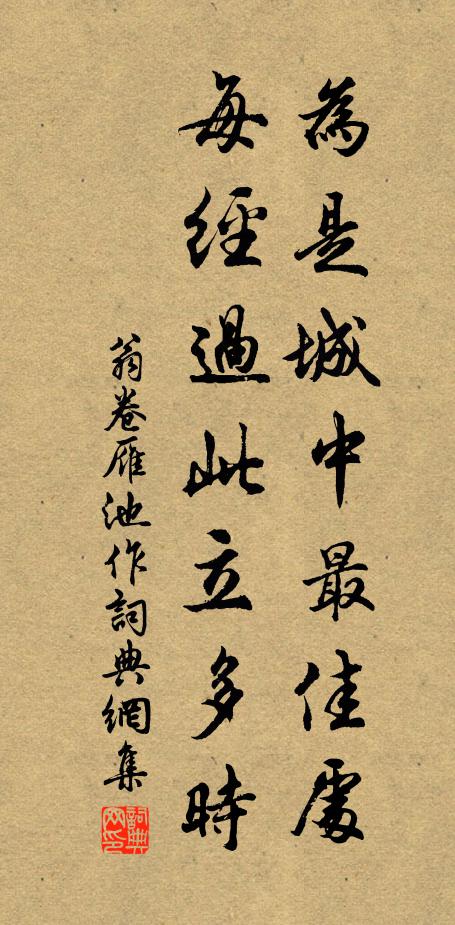 為是城中最佳處
每經過此立多時
翁卷雁池作詞典網集
詞典網印